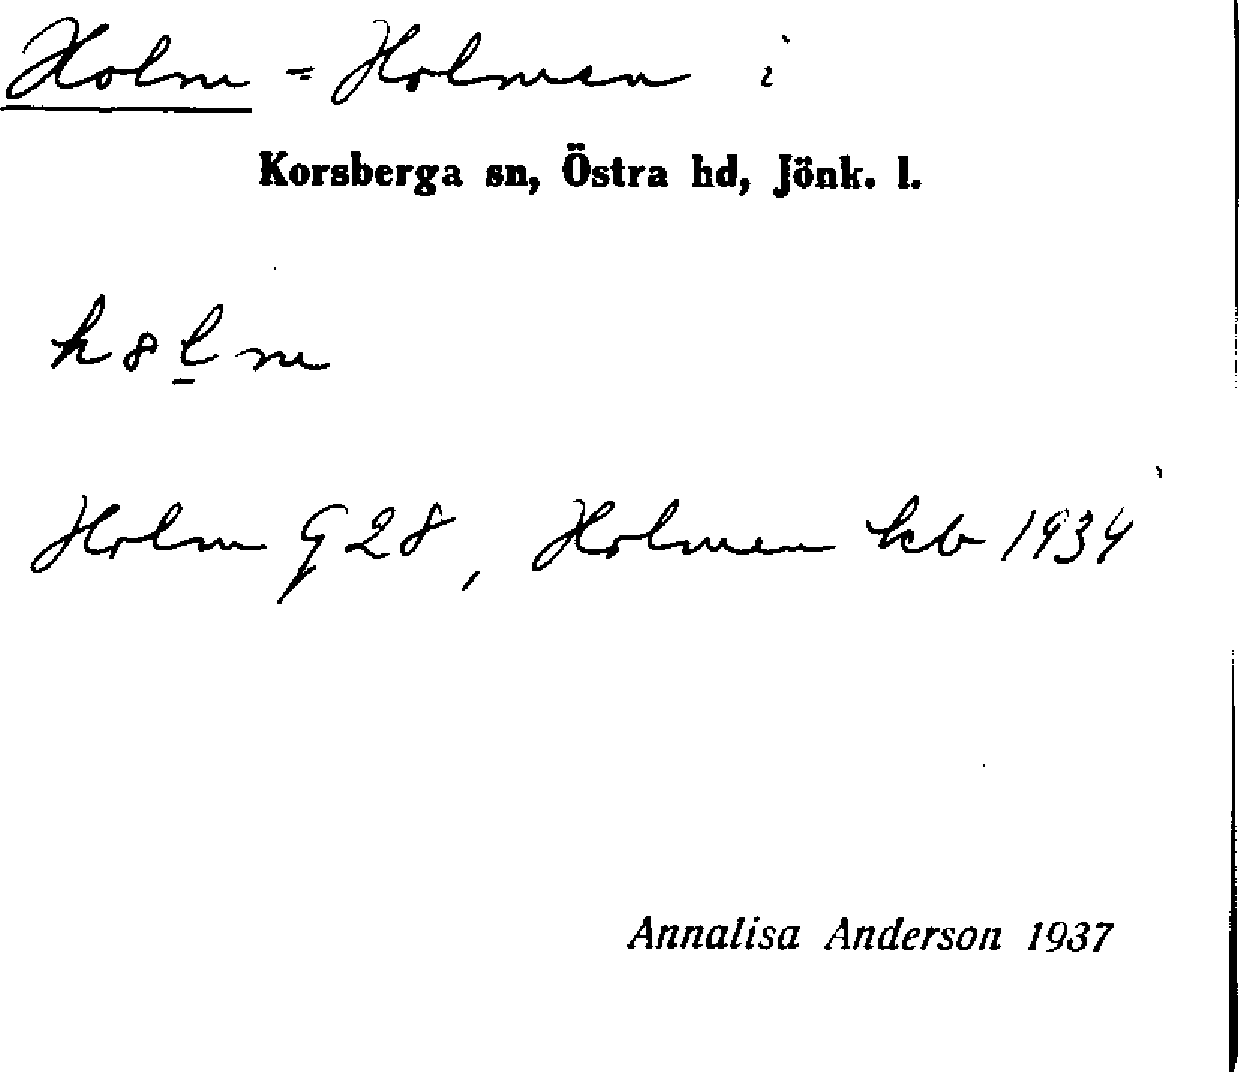 Holm = Holmen i
Korsberga sn, Östra hd, Jönk. l.
h8l̲m
Holm G28, Holmen kb 1934
Annalisa Anderson 1937